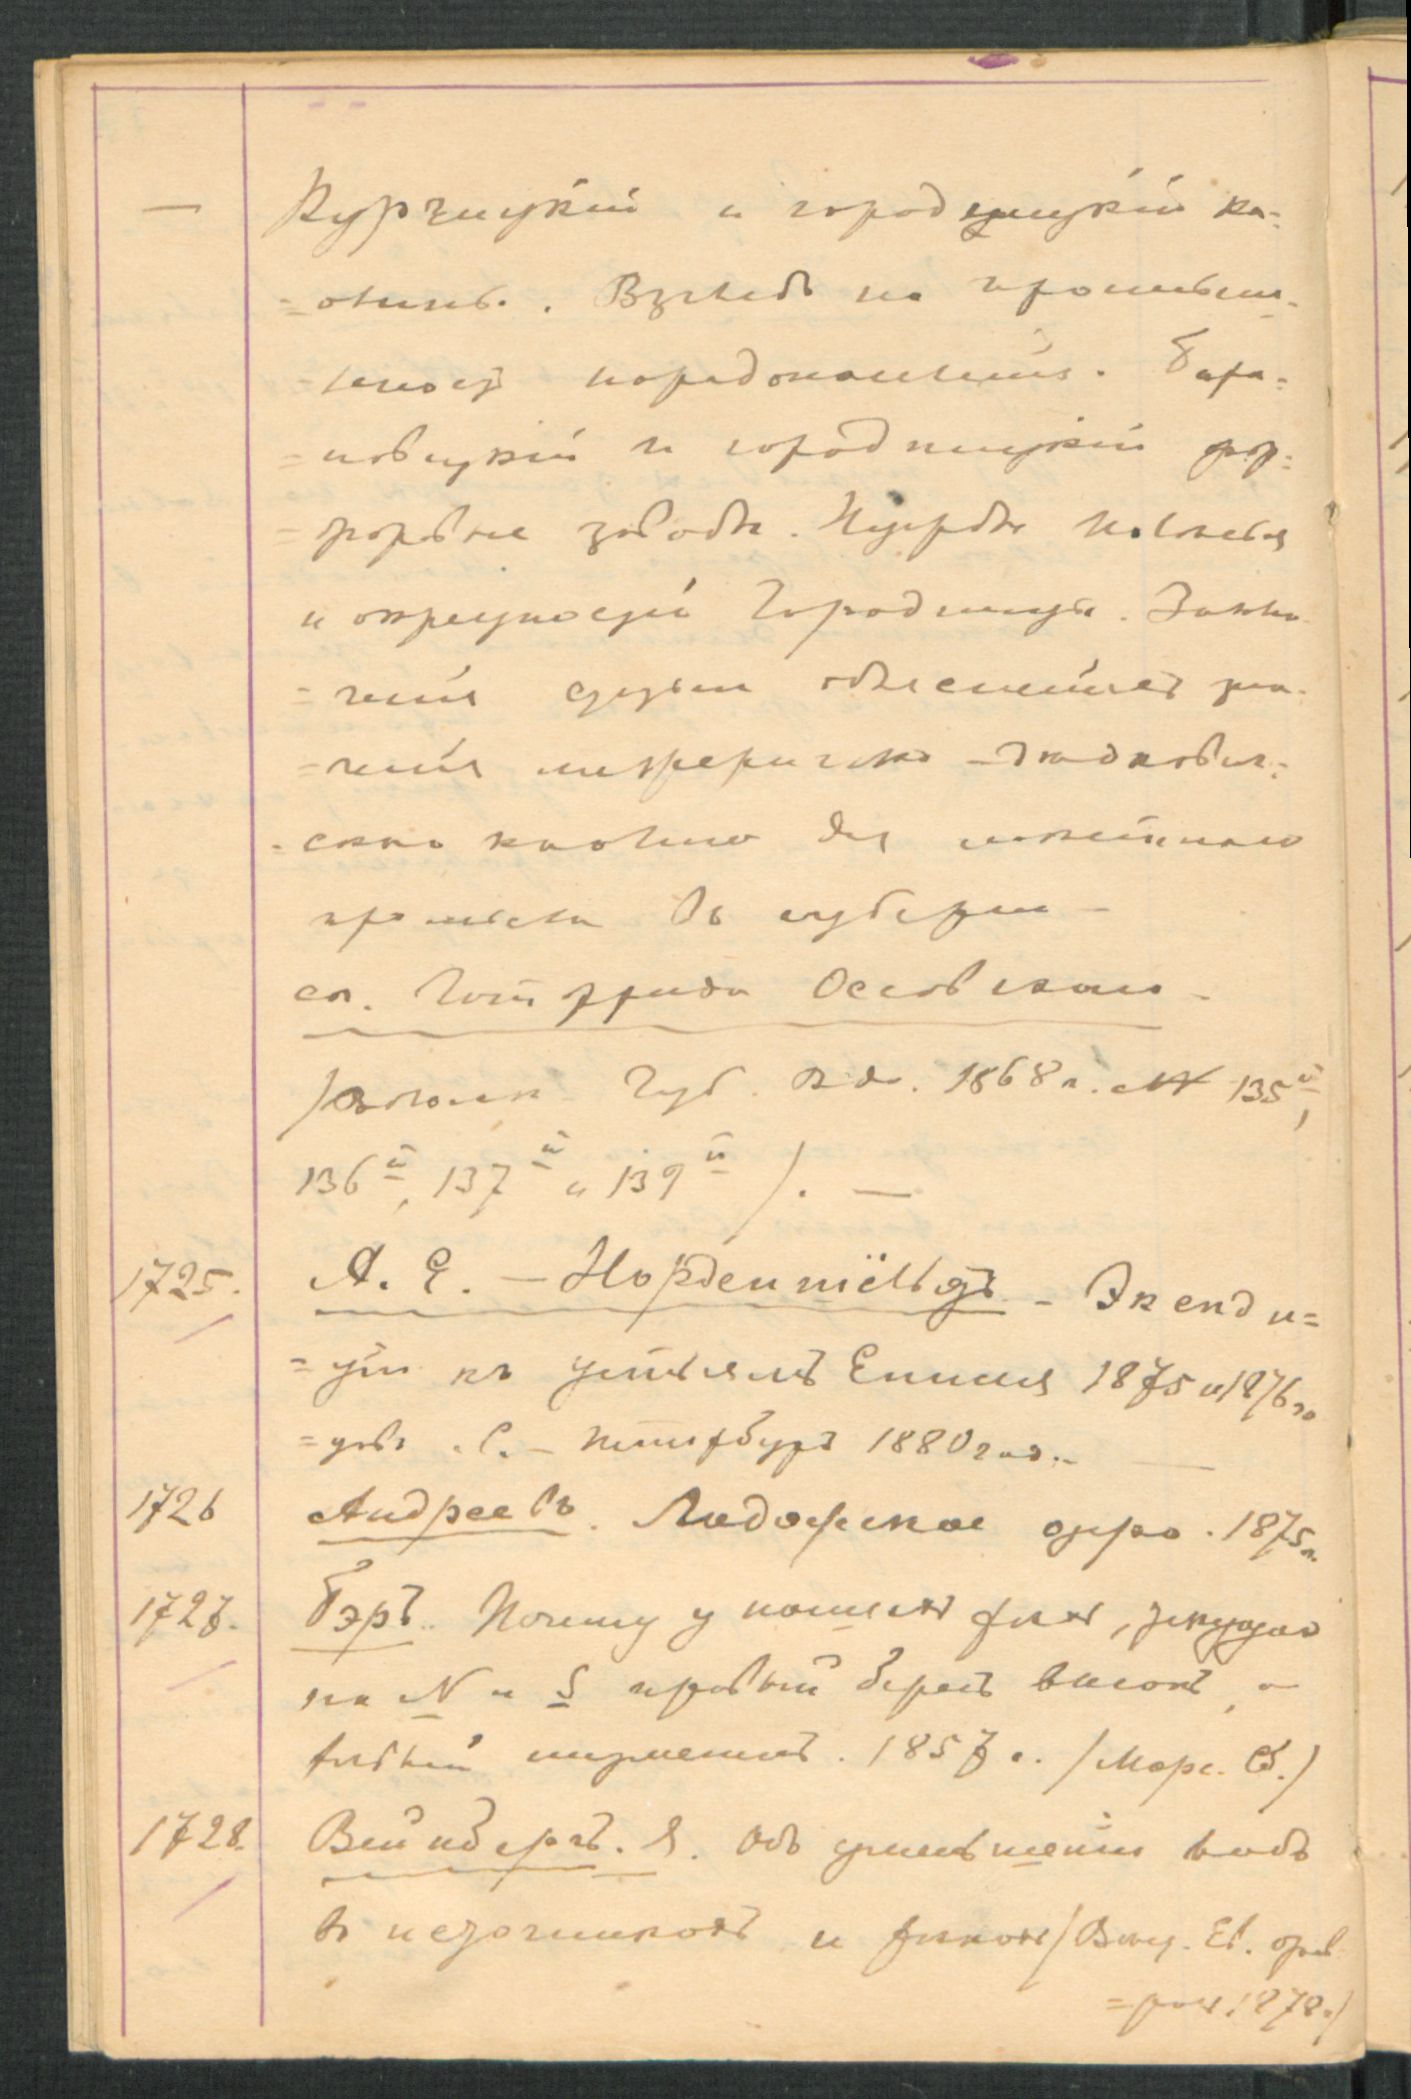 — Курчицкій и городницкій ка=
=олинъ. Взглядъ на промыш=
=леность народонаселенія. Бара=
=новицкій и городницкій фар=
=форовые заводы. Нужды
и окрестностей Городницы. Заклю=
=ченія статьи объясненіемъ зна=
=ченія
=скаго каолина для мѣстнаго
промысла въ губерніи —
ст. Готфрида Оссовскаго —
/Волынск. Губ. Вѣд. 1868 г. № 135й,
136й, 137й и 139й/. —
1725. А. Е. — Норденшёльдъ — Экспеди=
=ціи къ устьямъ Енисея 1875 и 1876 го
=довъ. С.-Петербургъ 1880 год. —
1726 Андреевъ. Ладожское озеро. 1875 г.
1727. Бэръ. Почему у нашихъ рѣкъ, текущихъ
на N и S правый берегъ высокъ, а
лѣвый низменный. 1857 г. /Морс. Сб./
1728. Вейнбергъ. Я. Объ уменьшеніи водъ
въ источникахъ и рѣкахъ /Вѣст. Ев. фев=
=раль 1878./